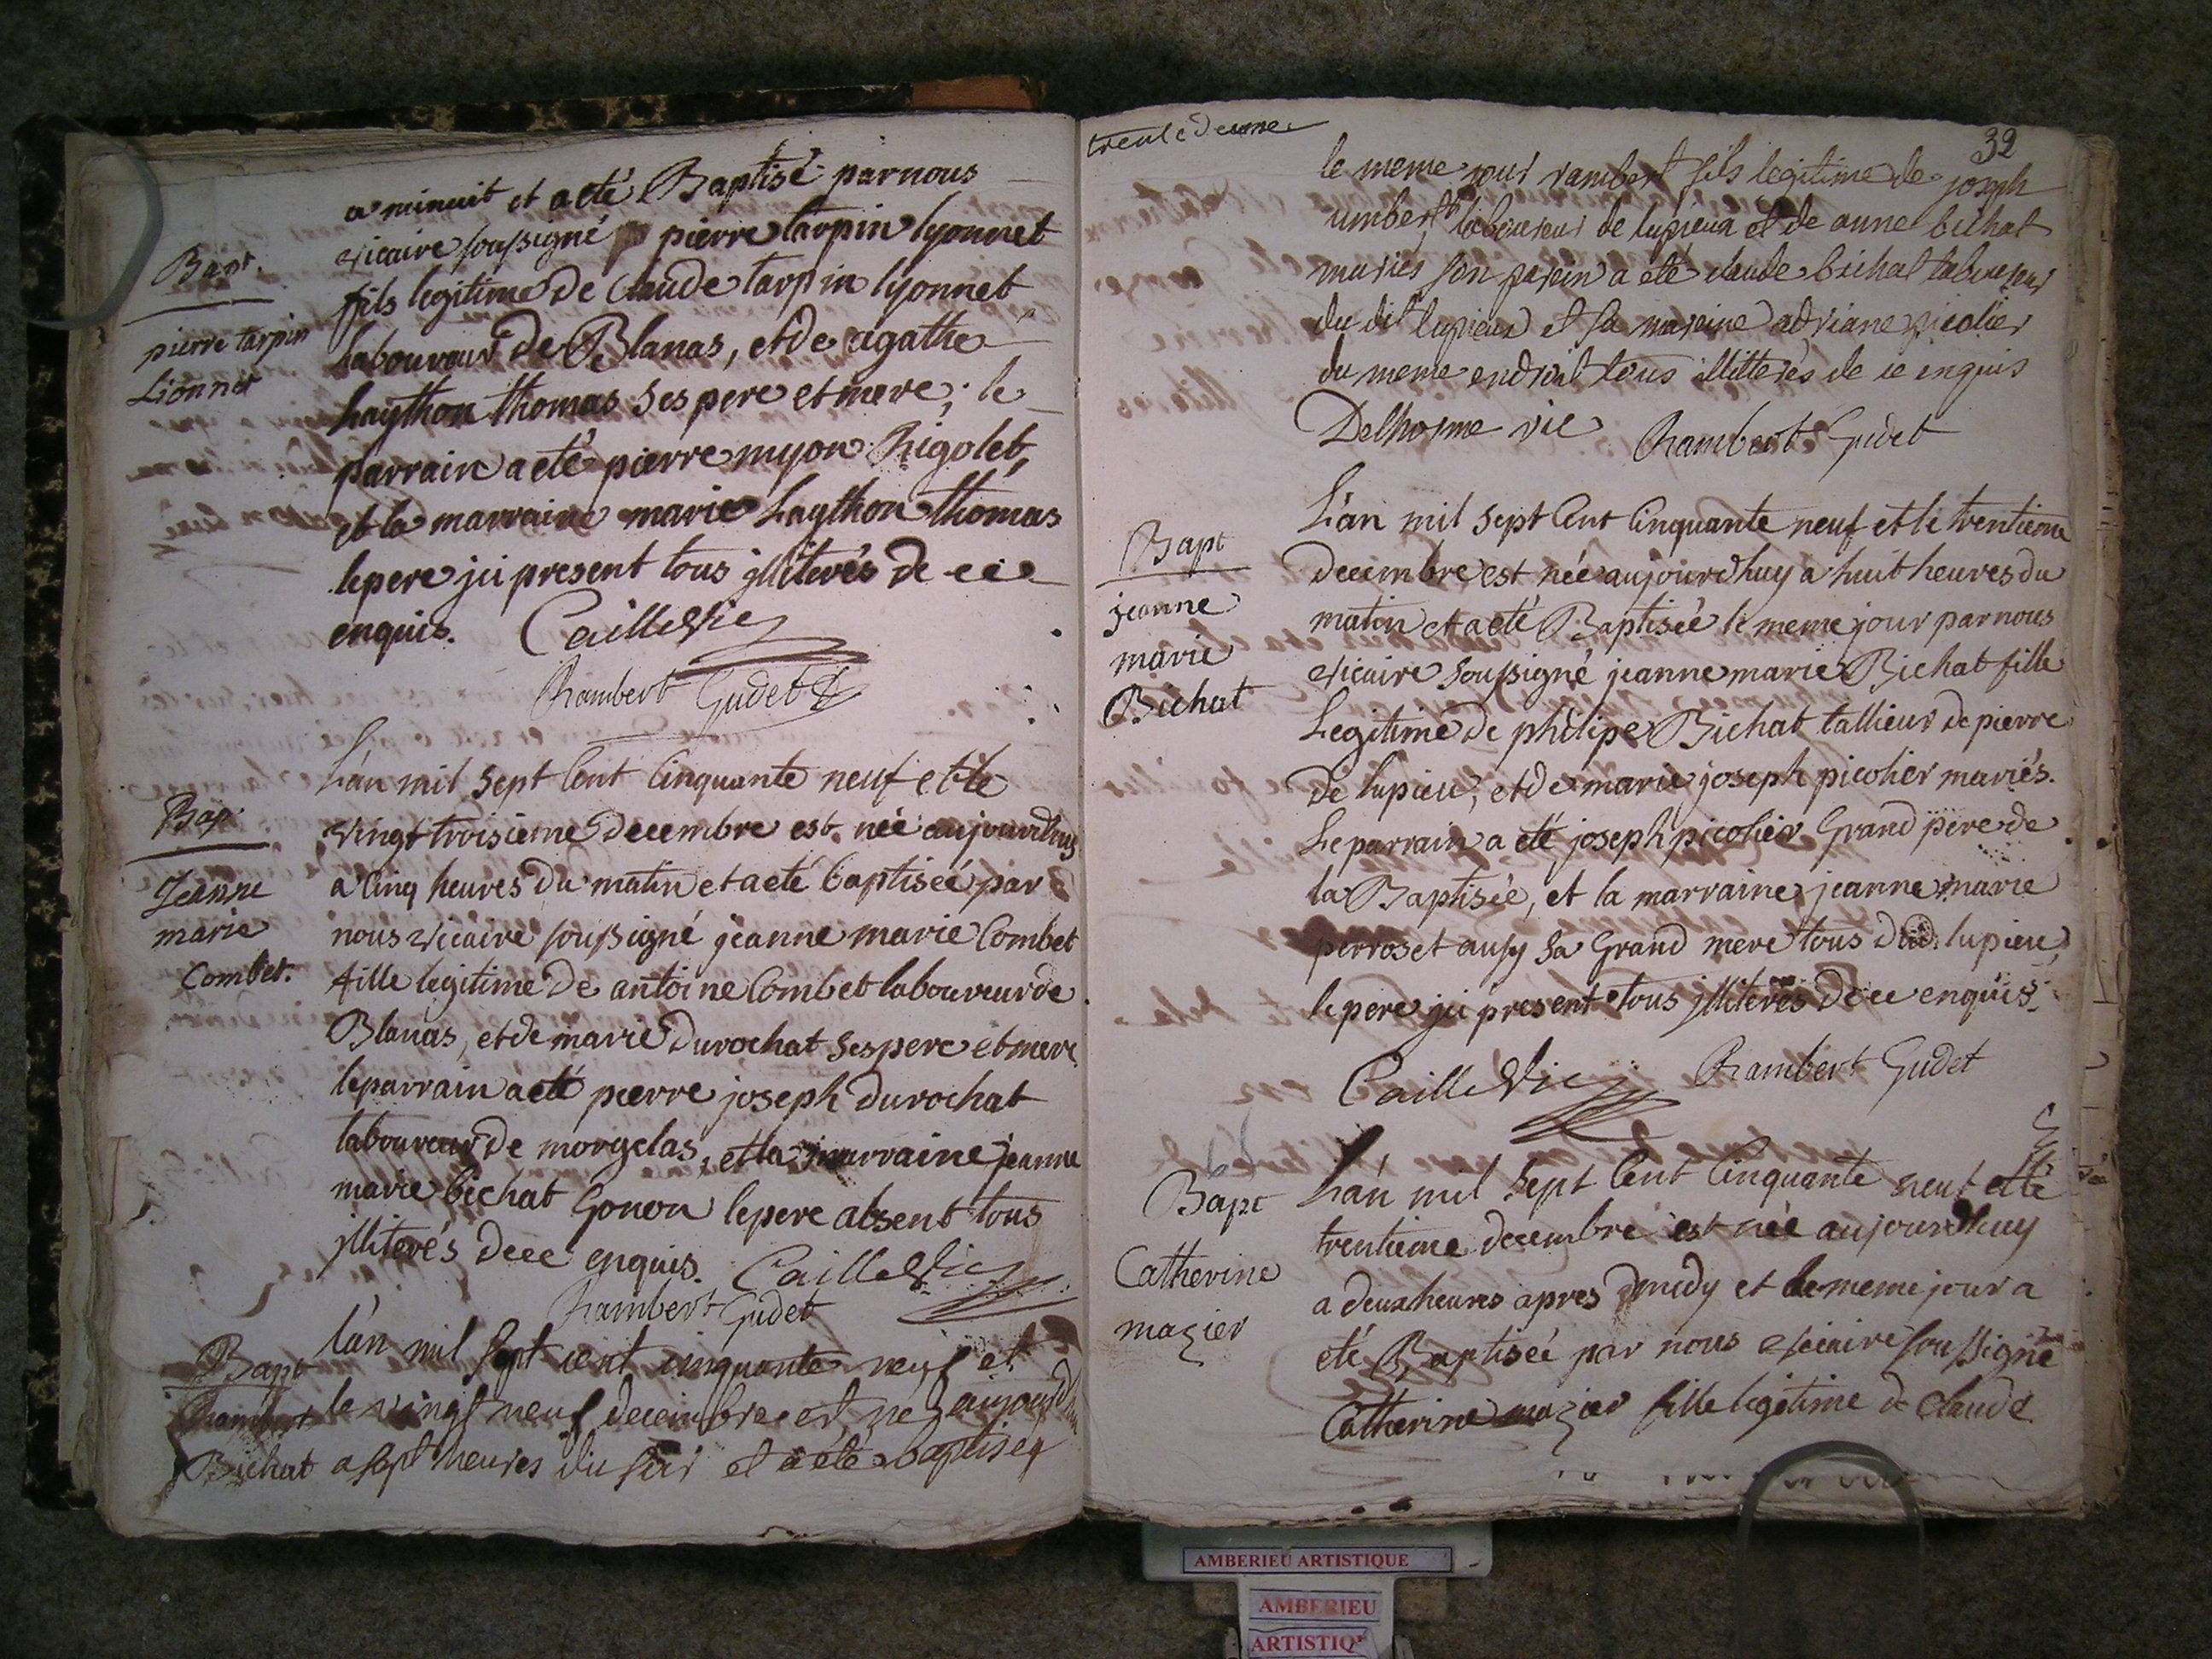 a minuit et a eté Baptisé par nous
vicaire soussigné pierre tarpin lyonnet
fils legitime de Claude tarpin lyonnet
laboureur de Blanas, et de agathe
haython thomas ses pere et mere; le
parrain a eté pierre myon Rigolet,
et la marraine marie haython thomas
le pere jci present tous jlliterés de ce
enquis. Caille Vic
Rambert Gudet
Bapt.
pierre tarpin
Lionnet
L'an mil sept Cent Cinquante neuf et le
vingt troisieme decembre est née aujourdhuy
a Cinq heures du matin et a eté baptisée par
nous vicaire soussigné jeanne marie Combet
fille legitime de antoine Combet laboureur de
Blanas, et de marie durochat ses pere et mere
le parrain a eté pierre joseph durochat
laboureur de morgelas, et la marraine jeanne
marie bichat Gonon le pere absent tous
jlliterés de ce enquis. Caille Vic
Rambert Gudet
Bap
Jeanne
marie
Combet.
l'an mil sept cent cinquante neuf et
le vingt neuf decembre est né aujourd
a sept heures du soir et a eté baptisé
Bapt
Rambert
Bichat
trente deume
32
le meme jour rambert fils legitime de joseph
umbert laboureur de lupieux et de anne bichat
maries son parein a eté claude bichat laboureur
du dit lupieux et sa mareine adriane picolier
du meme endroit tous illitterés de ce enquis
Delhorme vic Rambert Gudet
L'an mil sept Cent Cinquante neuf et le trentieme
decembre est née aujourdhuy a huit heures du
matin et a eté Baptisée le meme jour par nous
vicaire soussigné jeanne marie Bichat fille
Legitime de philipe Bichat tallieur de pierre
de lupieu, et de marie joseph picolier mariés.
Le parrain a eté joseph picolier Grand pere de
la Baptisée, et la marraine jeanne marie
perroset ausy sa Grand mere tous dud. lupieu,
le pere jci present tous jlliterés de ce enquis
Caille Vic Rambert Gudet
Bapt
jeanne
marie
Bichat
L'an mil Sept Cent Cinquante neuf et le
trentieme decembre est née aujourdhuy
a deux heures apres midy et le meme jour a
eté Baptisée par nous vicaire soussigné
Catherine mazier fille legitime de Claude
Bapt
Catherine
mazier
AMBERIEU ARTISTIQUE
AMBERIEU
ARTISTIQ